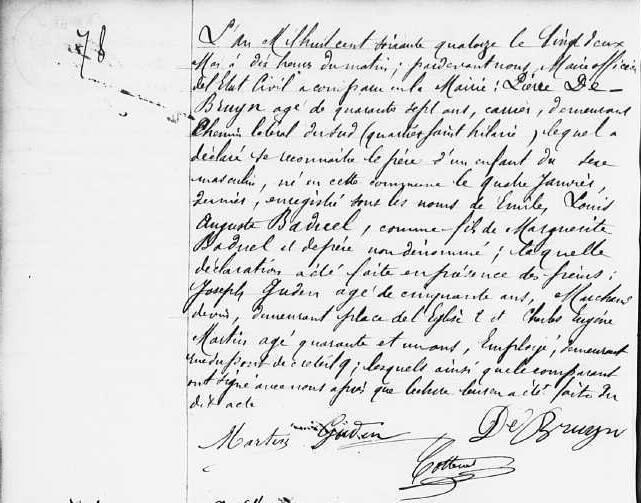 78
L'an Mil huit cent soixante quatorze le Vingt deux
Mai à dix heures du matin; pardevant nous, Maire officier
de l'Etat Civil a comparu en la Mairie: Pierre De-
Bruyn agé de quarante sept ans, carrier, demeurant
Chemin latéral du sud (quartier Saint hilaire), lequel a
déclaré se reconnaître le père d'un enfant du sexe
masculin, né en cette commune le quatre Janvier,
dernier, enregistré sous les noms de Emile, Louis
Auguste Baduel, comme fils de Marguerite
Baduel et de père non dénommé; laquelle
déclaration a été faite en présence des
Joseph Guden agé de cinquante ans, Marchand
de vins, demeurant place de l'Eglise 2 et Charles Eugène
Martin agé quarante et un ans, Employé, demeurant
rue du pont de 9; lesquels ainsi que le comparant
ont signé avec nous après que lecture leur en a été faite du
dit acte
Martin Guden De Bruyn